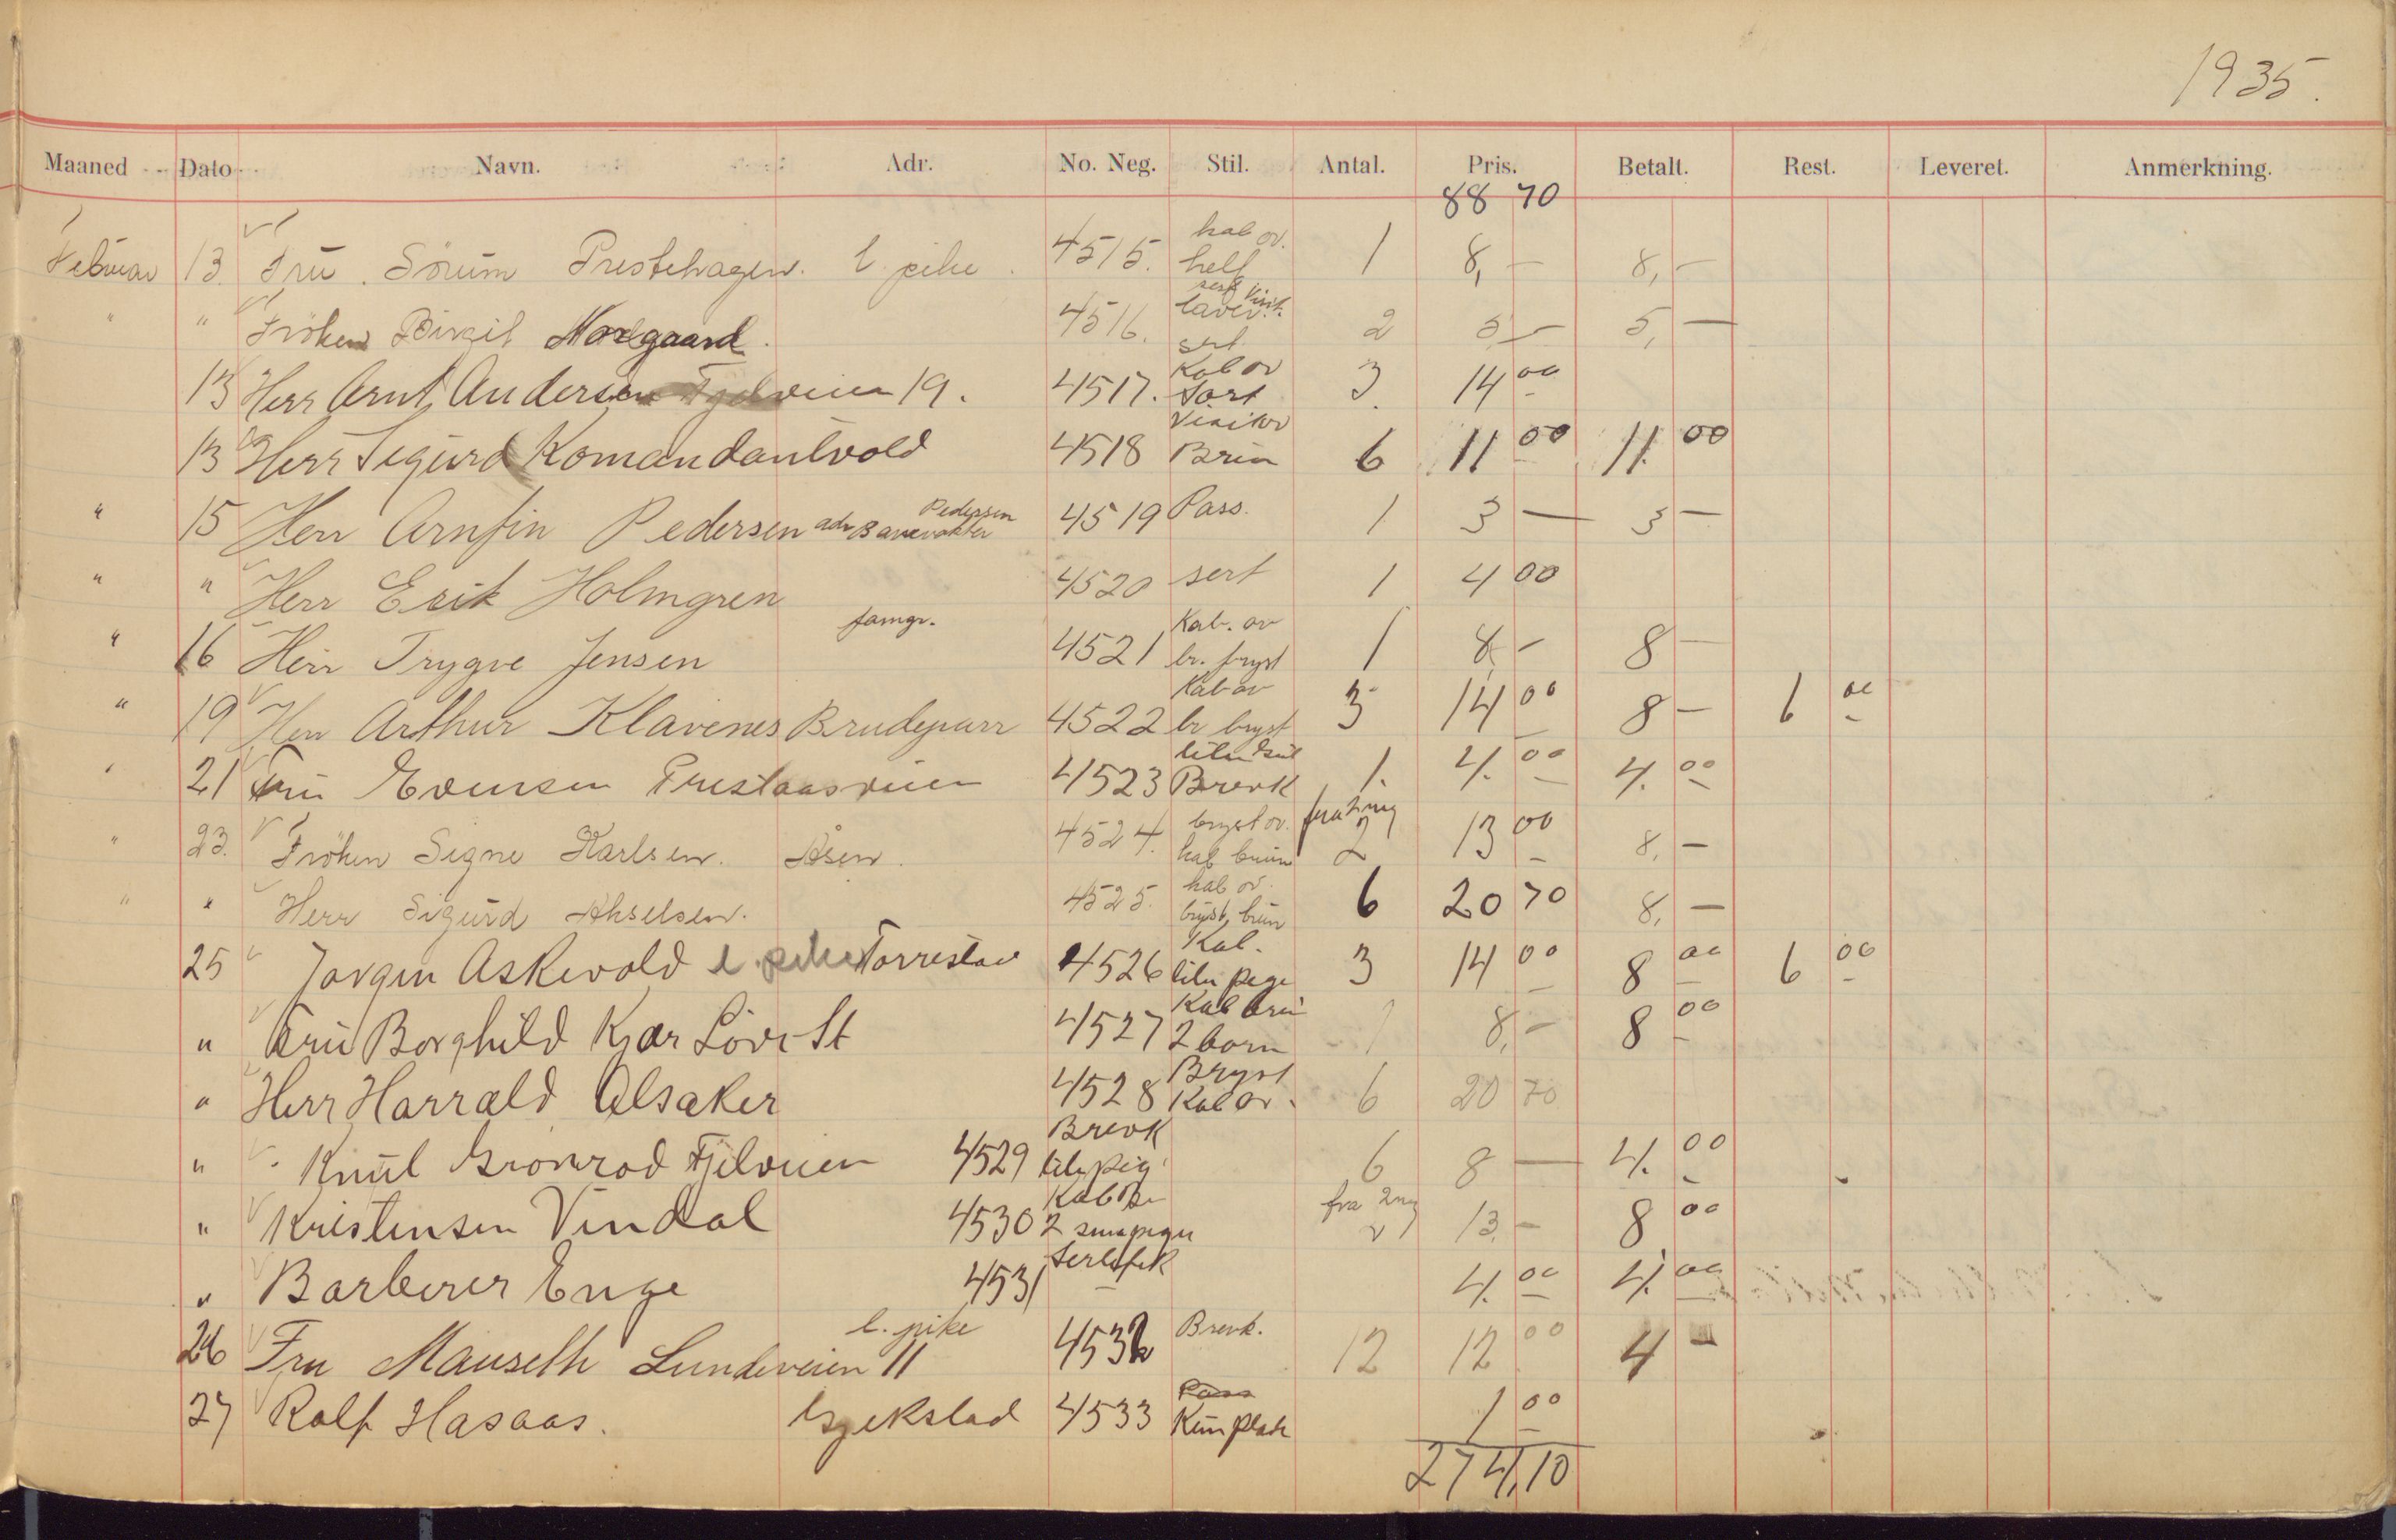 1935.
Maaned Dato Navn. Adr. No. Neg. Stil. Antal. Pris. Betalt. Rest. Leveret. Anmerkning.
88 70
kab ov.
Februar 13. Fru. Sörum Prestehagen. l. pike. 4515. helf 1 8,— 8,—
Visit.
" " Fröken Birgit Norgaard. 4516. 2 5,— 5,—
sort
Kab ov
13 Herr Arnt Andersen Fjelveien 19. 4517. Sort 3 14 00
Visitov
13 Herr Sigurd Komandantvold 4518 Brün 6 11 00 11. 00
Pedersen
" 15 Herr Arnfin Pedersen adr Banevokter 4519 Pass. 1 3 — 3 —
" " Herr Erik Holmgren 4520 sert 1 4 00
famgr. Kab. ov
" 16 Herr Trygve Jensen 4521 br. bryst 1 8,— 8 —
Kab ov
" 19 Herr Arthur Klavenes Brudeparr 4522 br bryst 3 14 00 8 — 6 00
" 21 Fru Evensen Prestaasveien 4523 Brevk 1. 4. 00 4. 00
bryst ov. fra 2 neg
" 23. Fröken Signe Karlsen. Åsen. 4524. kab brun 2 13 00 8,—
kab ov.
" " Herr Sigurd Akselsen. 4525. bryst, brun 6 20 70 8,—
Kab.
25 Jorgen Askevold l. pike Torrestad 4526 lilu pege 3 14 00 8 00 6 00
Kab brü
" Fru Borghild Kjær Löve-St 4527 2 born 1 8,— 8 00
Bryst
" Herr Harrald Alsaker 4528 Kab ov. 6 20 70
Brevk
" Knut Gronrod Fjelveien 4529 lilu pig 6 8 — 4. 00
fra 2 neg
" Kristensen Vindal 4530 2 smapiger 2 13,— 8 00
" Barberer Enge 4531 4. 00 4. 00
l. pike
26 Fru Mauseth Lundeveien 11 4532 Brevk. 12 12 00 4 —
Pass
27 Ralf Hasaas. Gjekstad 4533 Kun plate 1 00
274,10